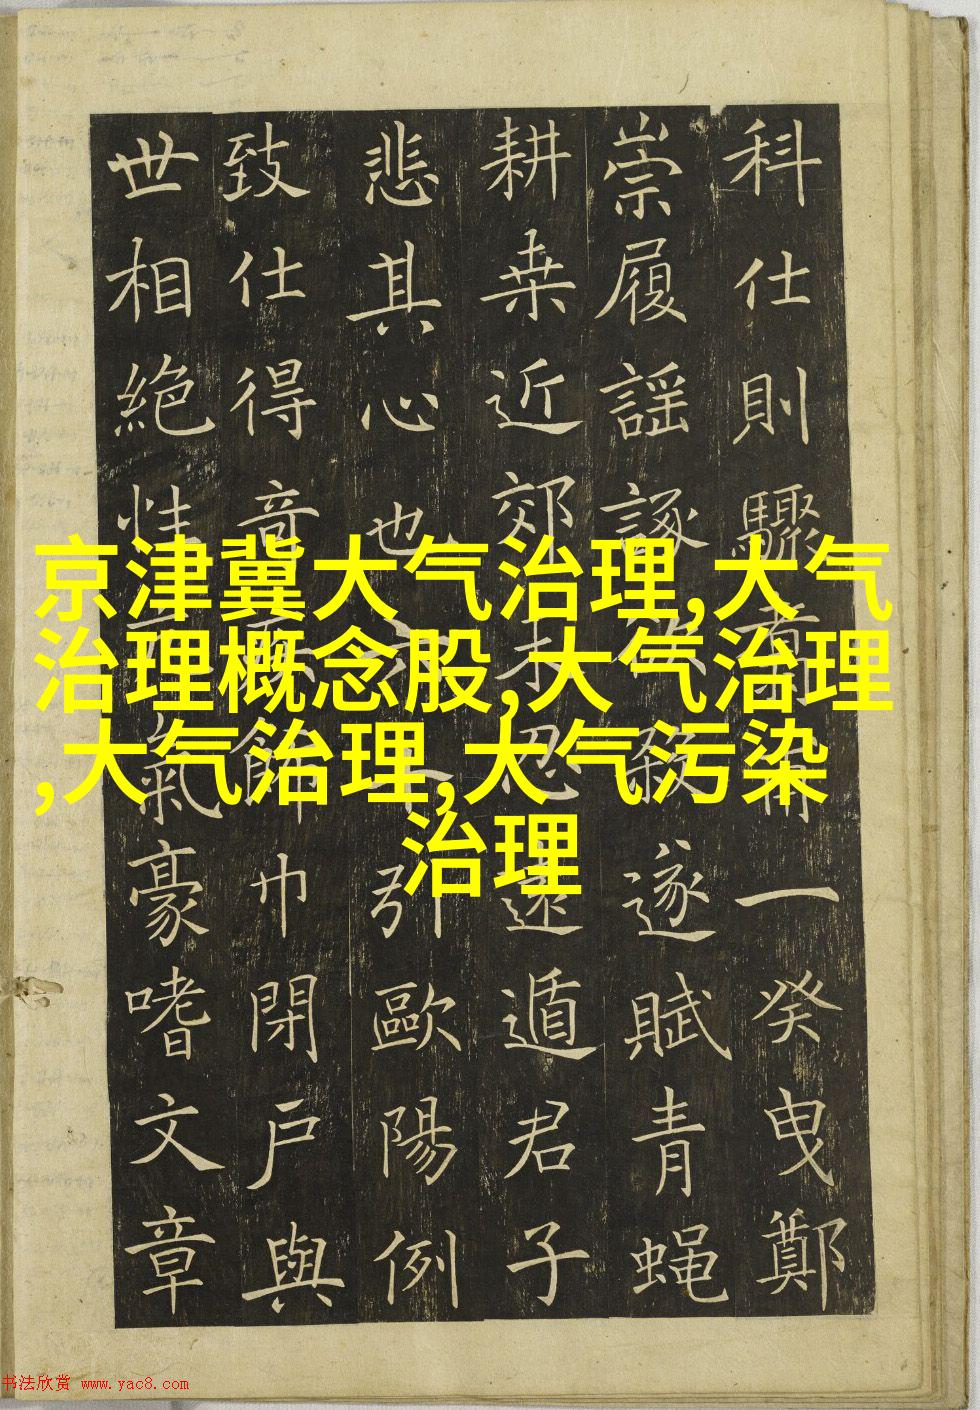 京津冀大气治理,大气
治理概念股,大气治理
,大气治理,大气污染
治理
科仕則驟一癸曳鄭
崇履謡諑殺遂賦青蝿
耕桒近郊不忍遠遁君子
悲其心也引歐陽例
致仕得音飾巾閉戸與
世相絶性氣豪嗜文章
书法欣赏 www.yac8.com